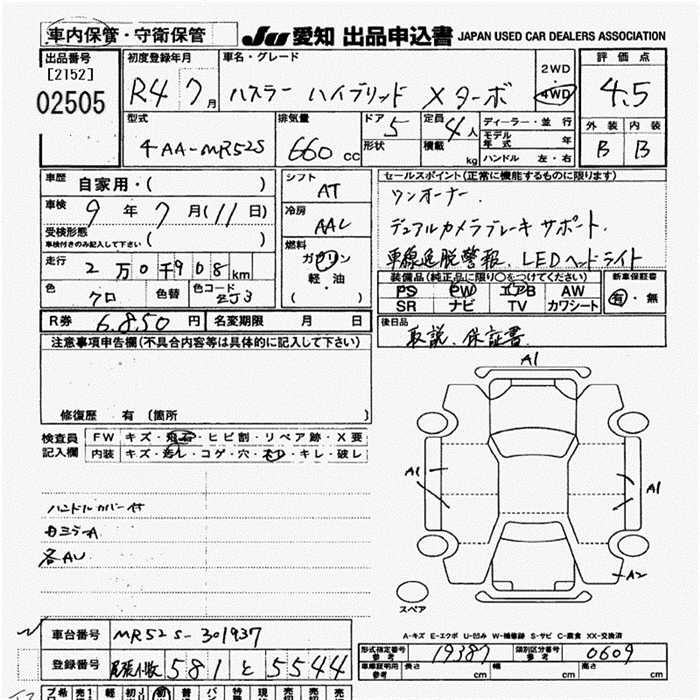 車内保管・守衛保管
JU 愛知 出品申込書 JAPAN USED CAR DEALERS ASSOCIATION
出品番号
[2152]
02505
初度登録年月
R4 7月
車名・グレード
ハスラー ハイブリッド Xターボ
2WD
4WD
評価点
4.5
外装 内装
B B
型式
4AA-MR52S
排気量
660 cc
ドア 5
形状
定員 4人
積載 kg
ディーラー・並行
モデル年式 年
ハンドル 左・右
車歴 自家用・( )
車検 9年7月(11日)
受検形態
車検付きのみ記入して下さい ( )
走行 2万0千908km
色 クロ 色替 色コード ZJ3
シフト
AT
冷房
AAC
燃料
ガソリン
軽・油
( )
セールスポイント(正常に機能するものに限ります)
ワンオーナー.
デュアルカメラブレーキサポート.
車線逸脱警報、LEDヘッドライト
装備品(純正品に限り○をつけてください)
PS PW エアB AW
SR ナビ TV カワシート
新車保証書
有・無
R券 6,850円 名変期限 月 日
後日品
取説、保証書
注意事項申告欄(不具合内容等は具体的に記入して下さい)
修復歴 有 〔箇所 〕
検査員記入欄
FW キズ・飛石・ヒビ割・リペア跡・X要
内装 キズ・汚レ・コゲ・穴・キレ・破レ
ハンドルカバー付
各AU
A1
A1
A1
A2
スペア
A-キズ E-エクボ U-凹み W-補修跡 S-サビ C-腐食 XX-交換済
車台番号 MR52S-301937
登録番号 尾張小牧 581 と 5544
型式指定番号
参考
19387
類別区分番号
参考
0609
車庫証明用
参考
長さ cm 幅 cm 高さ cm